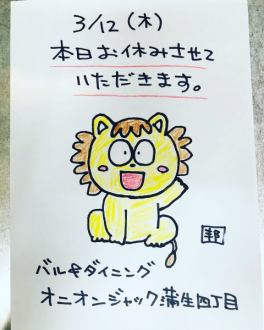 3/12（木）
本日お休みさせて
いただきます。
バル&ダイニング
オニオンジャック蒲生四丁目